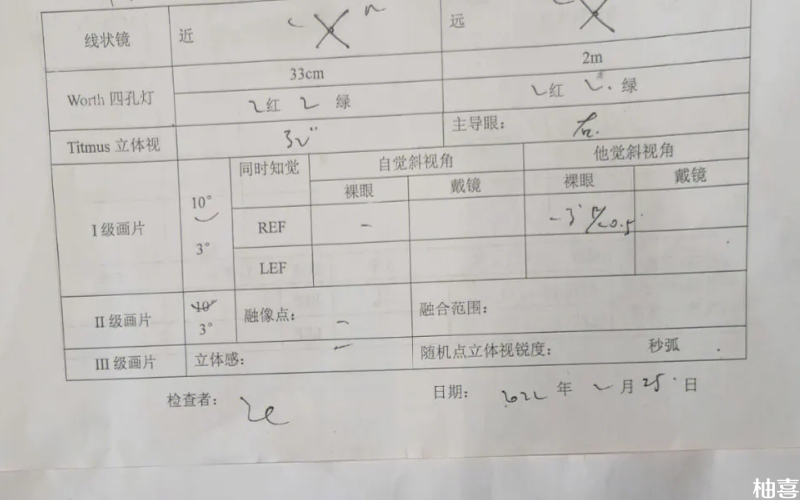 线状镜 近 远
33cm 2m
Worth 四孔灯 2红 2 绿 2红 2. 绿
Titmus 立体视 主导眼: 右.
I级画片 10° 3° 同时知觉 自觉斜视角 他觉斜视角
裸眼 戴镜 裸眼 戴镜
REF - -3°
LEF
II级画片 10° 3° 融像点: - 融合范围:
III级画片 立体感: - 随机点立体视锐度: 秒弧
检查者: 日期: 2022 年 2 月 25 日
柚喜